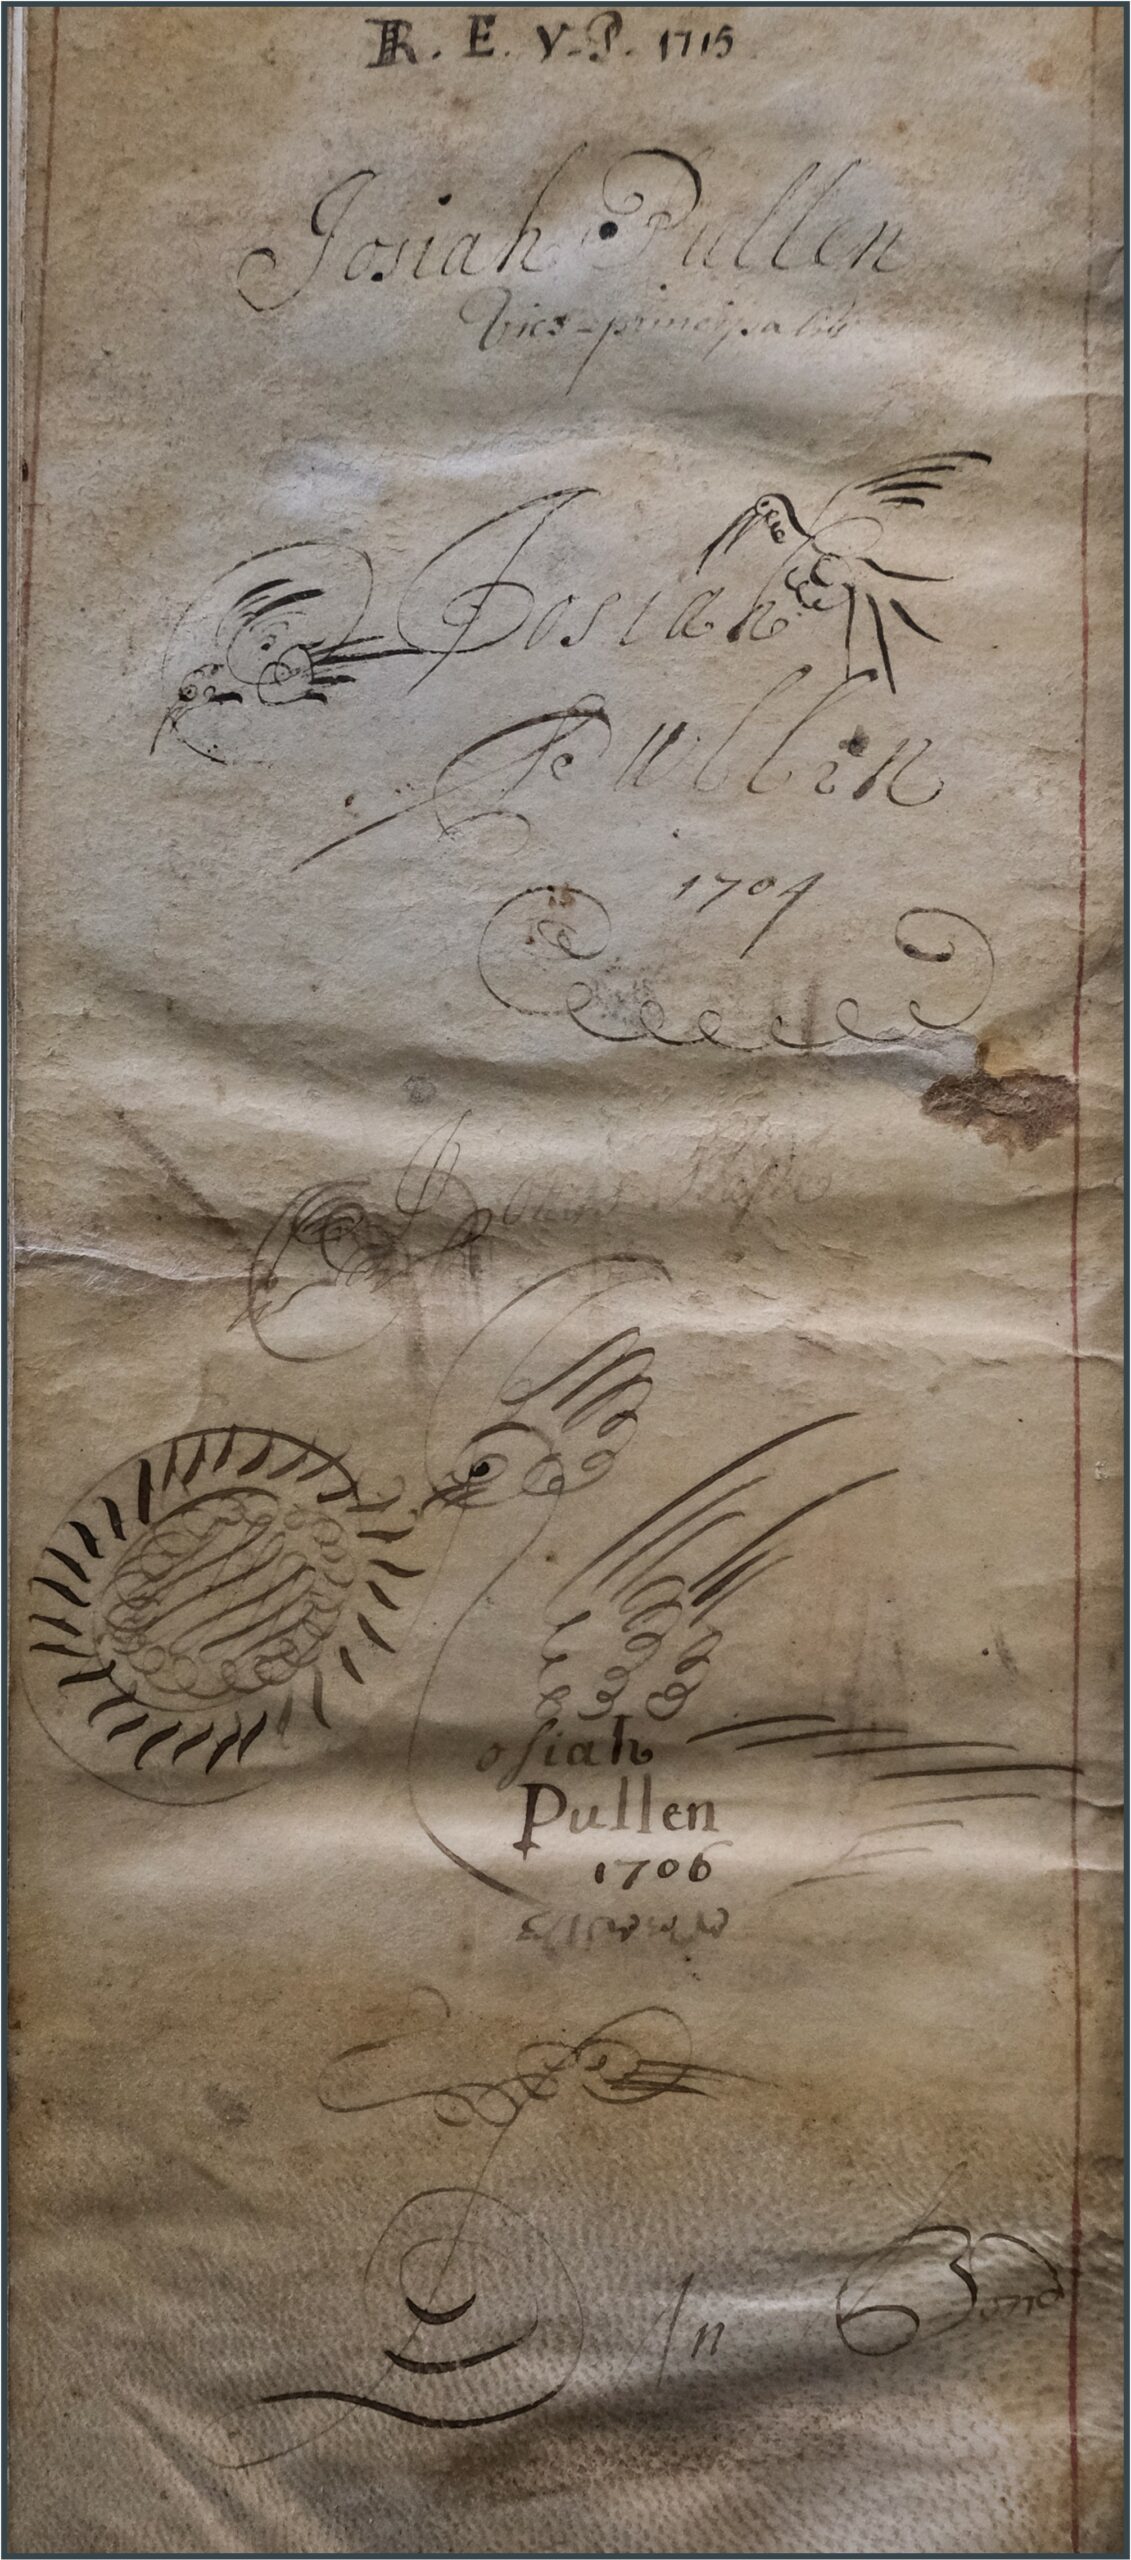 R. E. V-P. 1715
Josiah Pullen
Vice-principalis
Josiah
Pullen
1704
osiah
Pullen
1706
In Bond